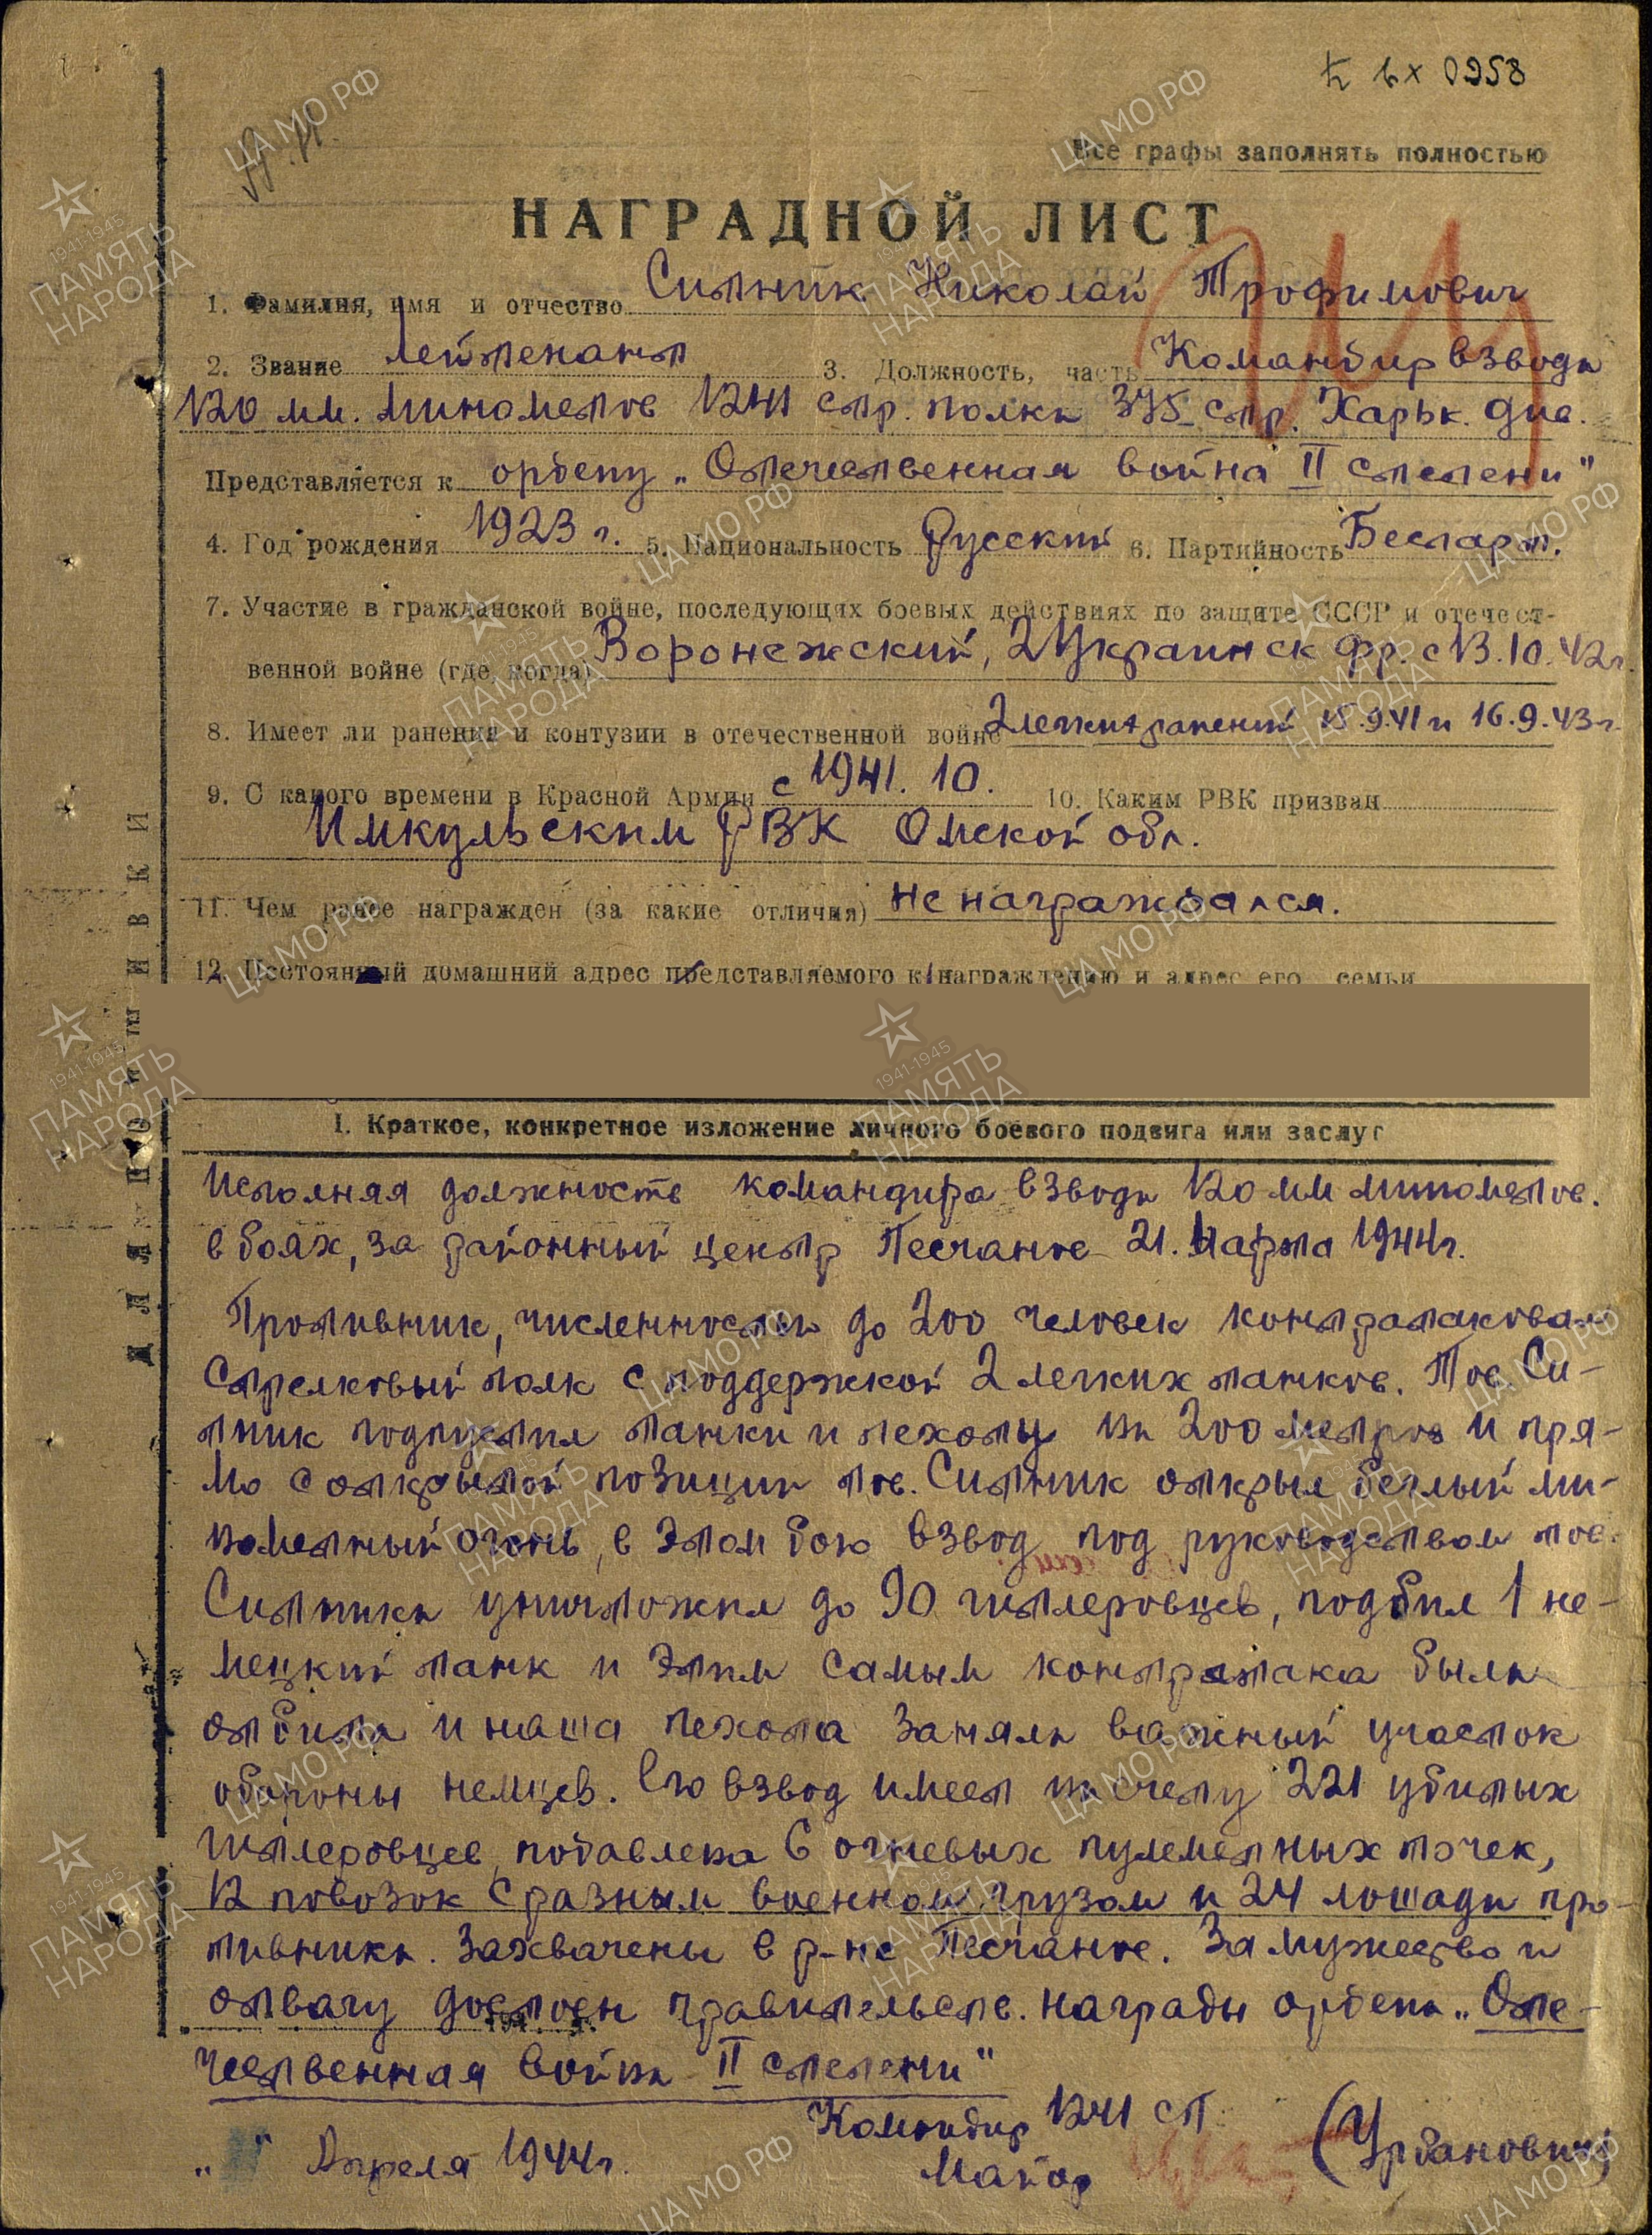 вх 0958
Все графы заполнять полностью
НАГРАДНОЙ ЛИСТ
1. Фамилия, имя и отчество Ситник Николай Трофимович
2. Звание лейтенант 3. Должность, часть Командир взвода
120 мм. минометов 1241 стр. полка 375 стр. Харьк. див.
Представляется к ордену „Отечественная война II степени"
4. Год рождения 1923 г. 5. Национальность Русский 6. Партийность Беспарт.
7. Участие в гражданской войне, последующих боевых действиях по защите СССР и отечест-
венной войне (где, когда) Воронежский, 2 Украинск фр. с 13.10.42г.
8. Имеет ли ранения и контузии в отечественной войне 2 легких ранений 15.9.41 и 16.9.43г.
9. С какого времени в Красной Армии с 1941. 10. 10. Каким РВК призван
РВК Омской обл.
11. Чем ранее награжден (за какие отличия) не награждался.
12. Постоянный домашний адрес представляемого к награждению и адрес его семьи
ДЛЯ ПОДШИВКИ
I. Краткое, конкретное изложение личного боевого подвига или заслуг
Исполняя должность командира взвода 120 мм минометов.
в боях, за районный центр Песчаное 21. Марта 1944г.
Противник, численностью до 200 человек контратаковал
Стрелковый полк с поддержкой 2 легких танков. Тов. Си-
тник подпустил танки и пехоту на 200 метров и пря-
мо с открытой позиции тов. Ситник открыл беглый ми-
нометный огонь, в этом бою взвод под руководством тов.
Ситника уничтожил до 90 гитлеровцев, подбил 1 не-
мецкий танк и этим самым контратака была
отбита и наша пехота заняла важный участок
обороны немцев. Его взвод имеет на счету 221 убитых
гитлеровцев, подавлена 6 огневых пулеметных точек,
12 повозок с разным военном грузом и 24 лошади про-
тивника. Захвачены в р-не Песчаное. За мужество и
отвагу достоен правительств. награды ордена „Оте-
чественная война II степени"
Командир 1241 СП
„ " Апреля 1944г. Майор (Урбанович)
ЦАМО РФ
1941-1945
ПАМЯТЬ
НАРОДА